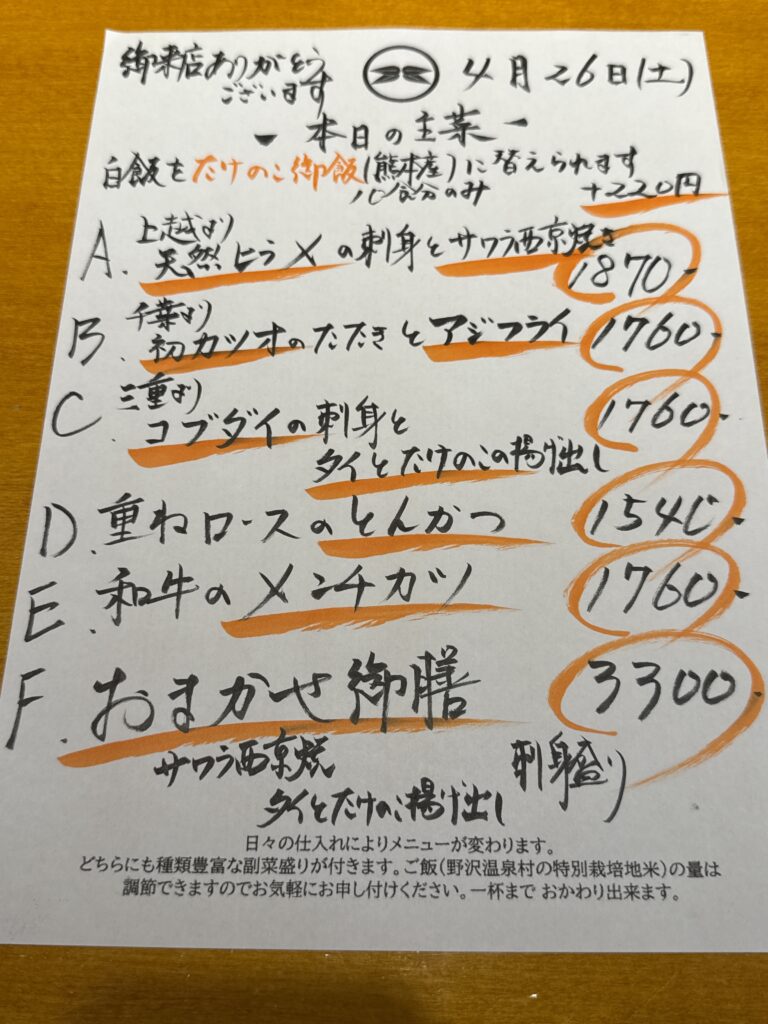 御来店ありがとう
ございます
4月26日(土)
本日の主菜
白飯をたけのこ御飯(熊本産)に替えられます
10食分のみ
+220円
上越より
A. 天然ヒラメの刺身とサワラ西京焼き
1870-
千葉より
B. 初カツオのたたきとアジフライ 1760-
三重より
C. コブダイの刺身と 1760-
タイとたけのこの揚げ出し
D. 重ねロースのとんかつ 1540-
E. 和牛のメンチカツ 1760-
F. おまかせ御膳 3300-
サワラ西京焼 刺身盛り
タイとたけのこ揚げ出し
日々の仕入れによりメニューが変わります。
どちらにも種類豊富な副菜盛りが付きます。ご飯(野沢温泉村の特別栽培地米)の量は
調節できますのでお気軽にお申し付けください。一杯まで おかわり出来ます。